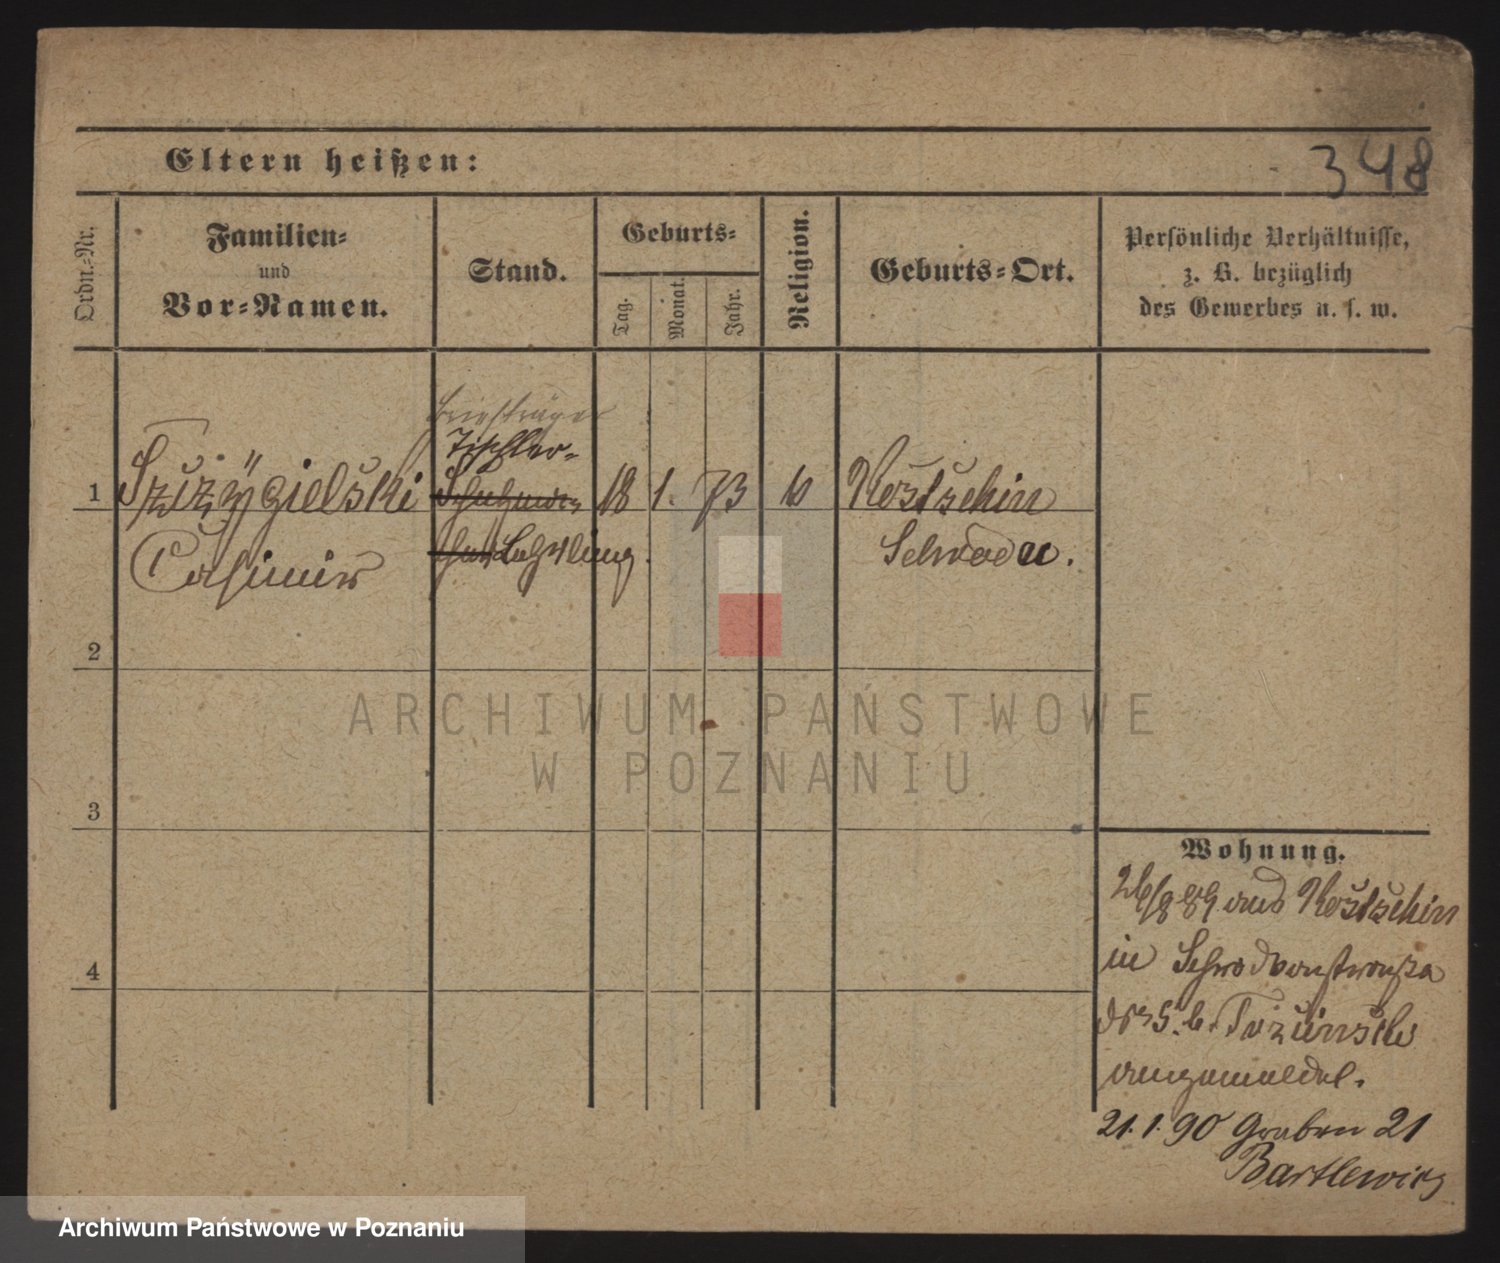 Eltern heißen:
348
Ordn.-Nr.
Familien-
und
Vor-Namen.
Stand.
Geburts-
Tag.
Monat.
Jahr.
Religion.
Geburts-Ort.
Persönliche Verhältnisse,
z. B. bezüglich
des Gewerbes u. s. w.
Briefträger
Tischler-
1 Szczÿgielski Schuhma- 18 1. 73 k Kostschin
Casimir cher Lehrling. Schroda u.
2
3
4
Wohnung.
26/9 89 aus Kostschin
in Schrodkastraße
5. b.
angemeldet.
21.1.90 Graben 21
Bartlewicz
ARCHIWUM PAŃSTWOWE
W POZNANIU
Archiwum Państwowe w Poznaniu